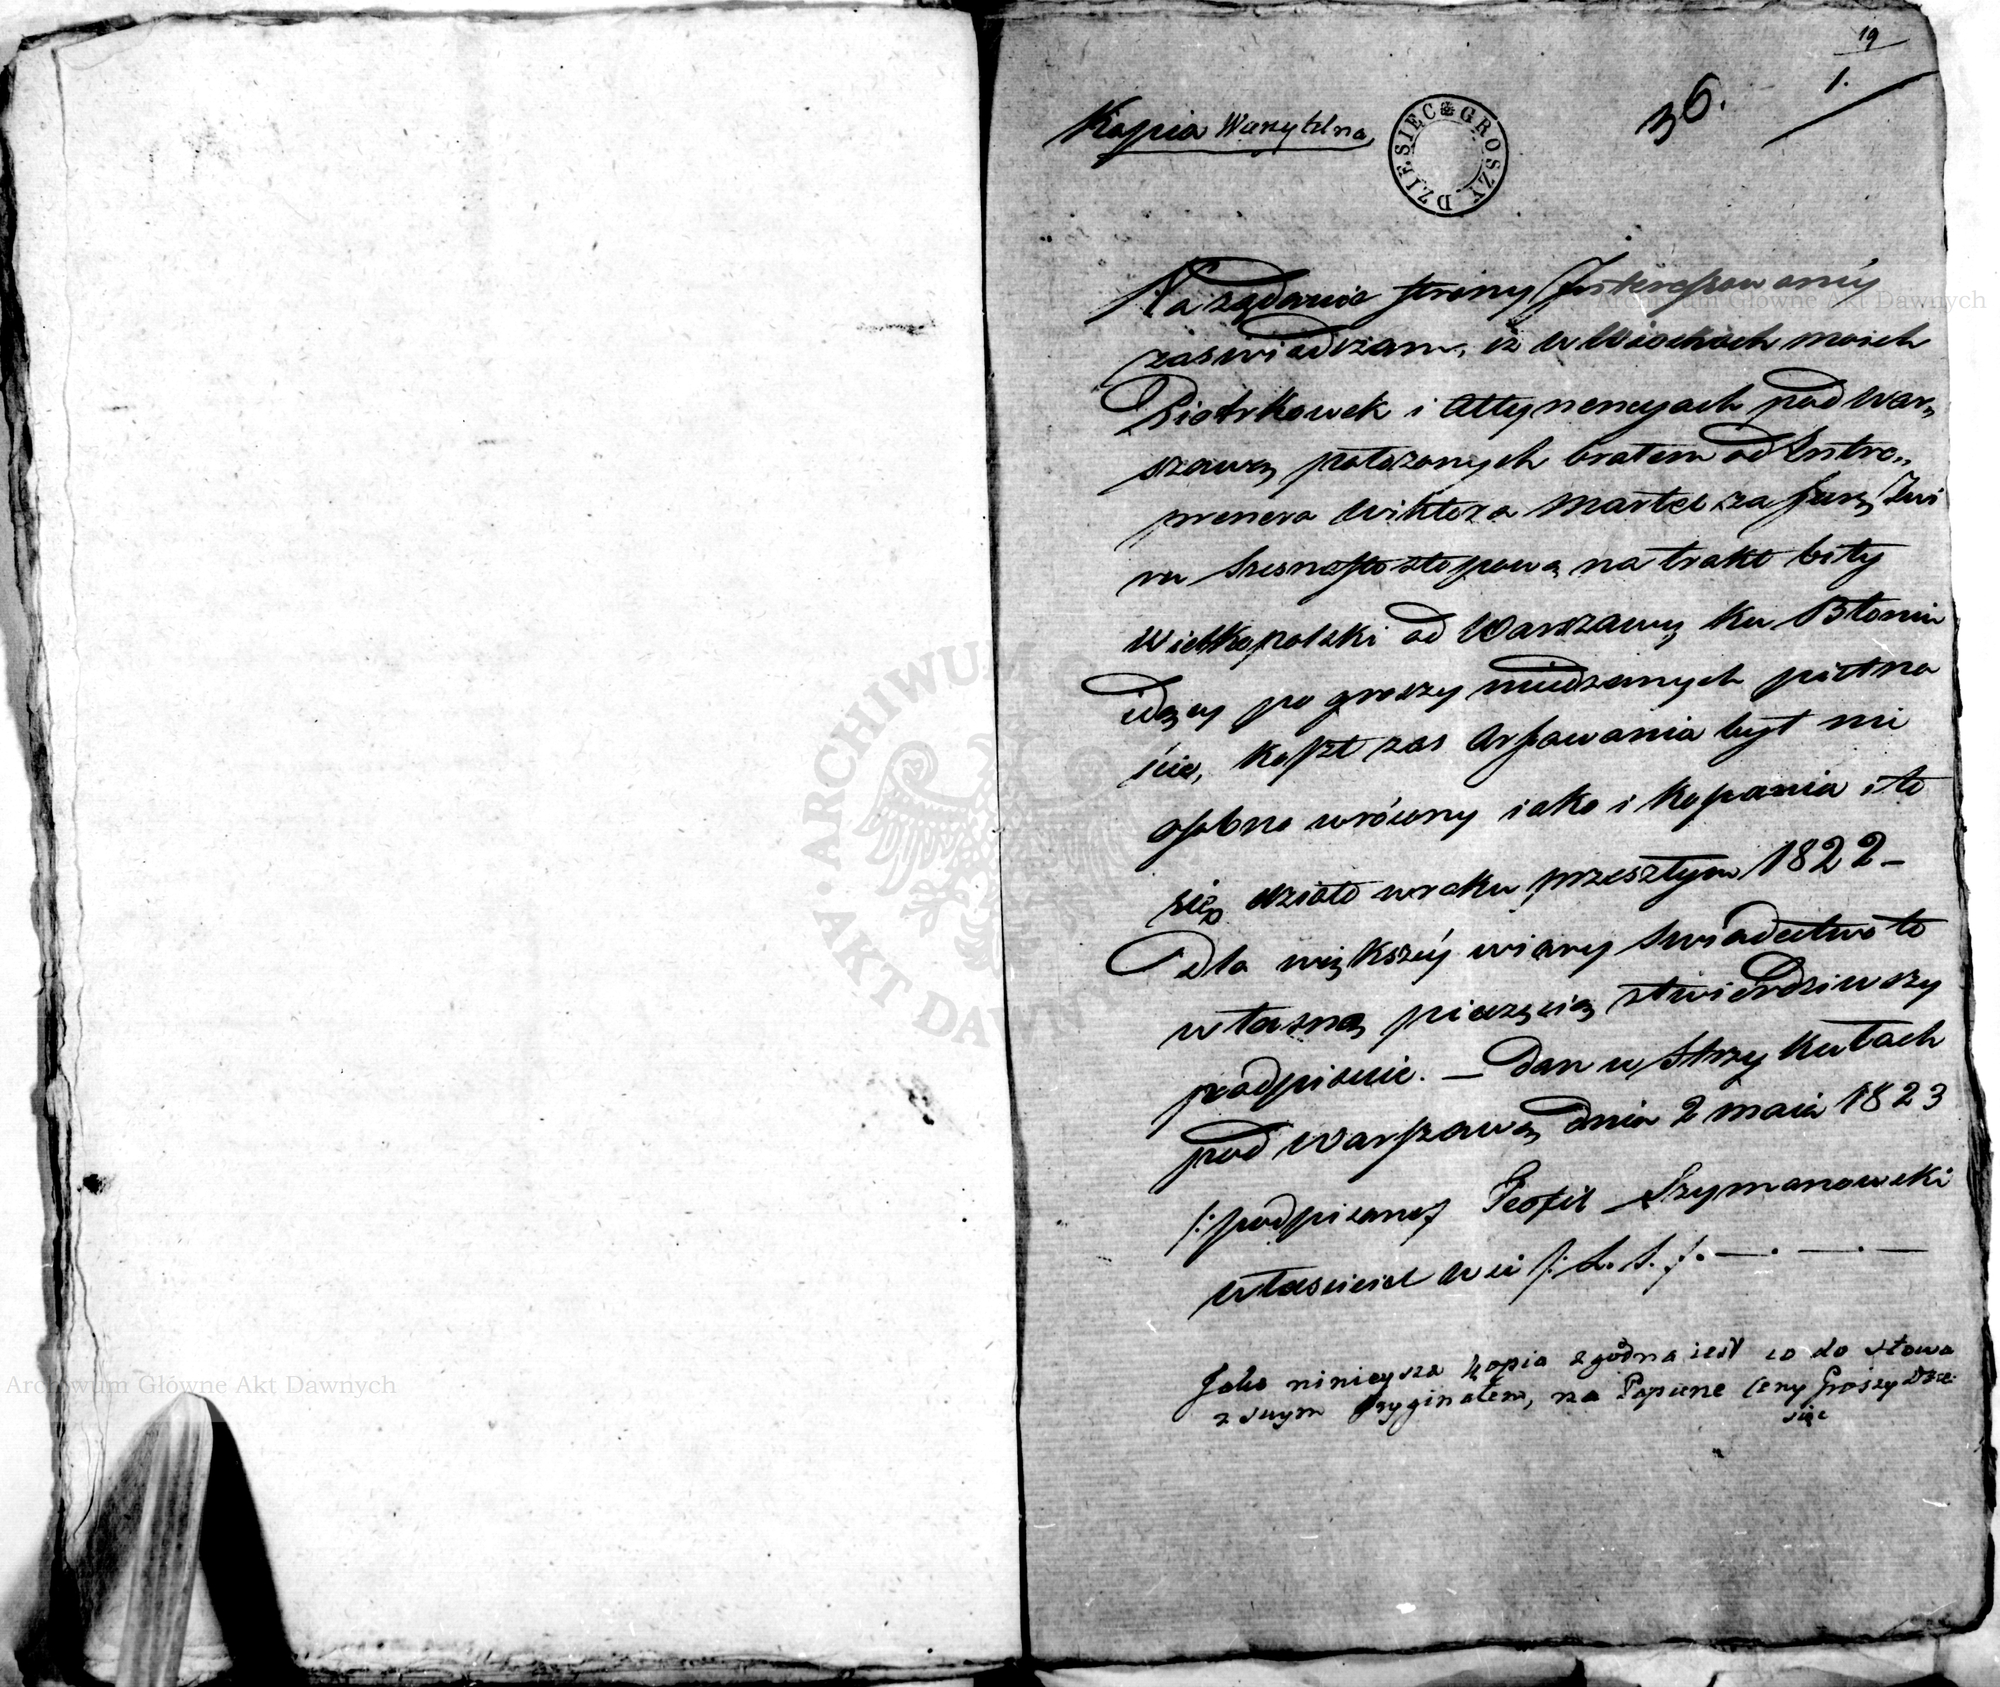 19
1.
36.
Kopia Wierzytelna
DZIESIĘC GROSZY
Na żądanie strony Interessowanéy
zaswiadczam, iż w Wioskach moich
Piotrkowek i Attynencyach pod War„
szawą położonych bratem od Entre„
prenera Wiktora Martel za furę Zwi
ru szesnasto stopową na trakt bity
Wielkopolski od Warszawy ku Błoniu
idący po groszy miedzianych piętna
ście, koszt zas Arfowania był mi
osobno wrócony iako i kopania i to
się działo w roku przeszłym 1822 –
Dla większéy wiary swiadectwo to
własną pieczęcią ztwierdziwszy
podpisuie. – Dan w Strzykułach
pod Warszawą dnia 2 maia 1823
/: podpisany Teofil Szymanowski
własciciel Wsi /: L. S. :/. —.—.—
Jako ninieysza kopia zgodna iest co do słowa
z swym Oryginałem, na Papierze Ceny Groszy Dzie-
sięc
Archiwum Główne Akt Dawnych
ARCHIWUM G
AKT DAWNY
Archiwum Główne Akt Dawnych